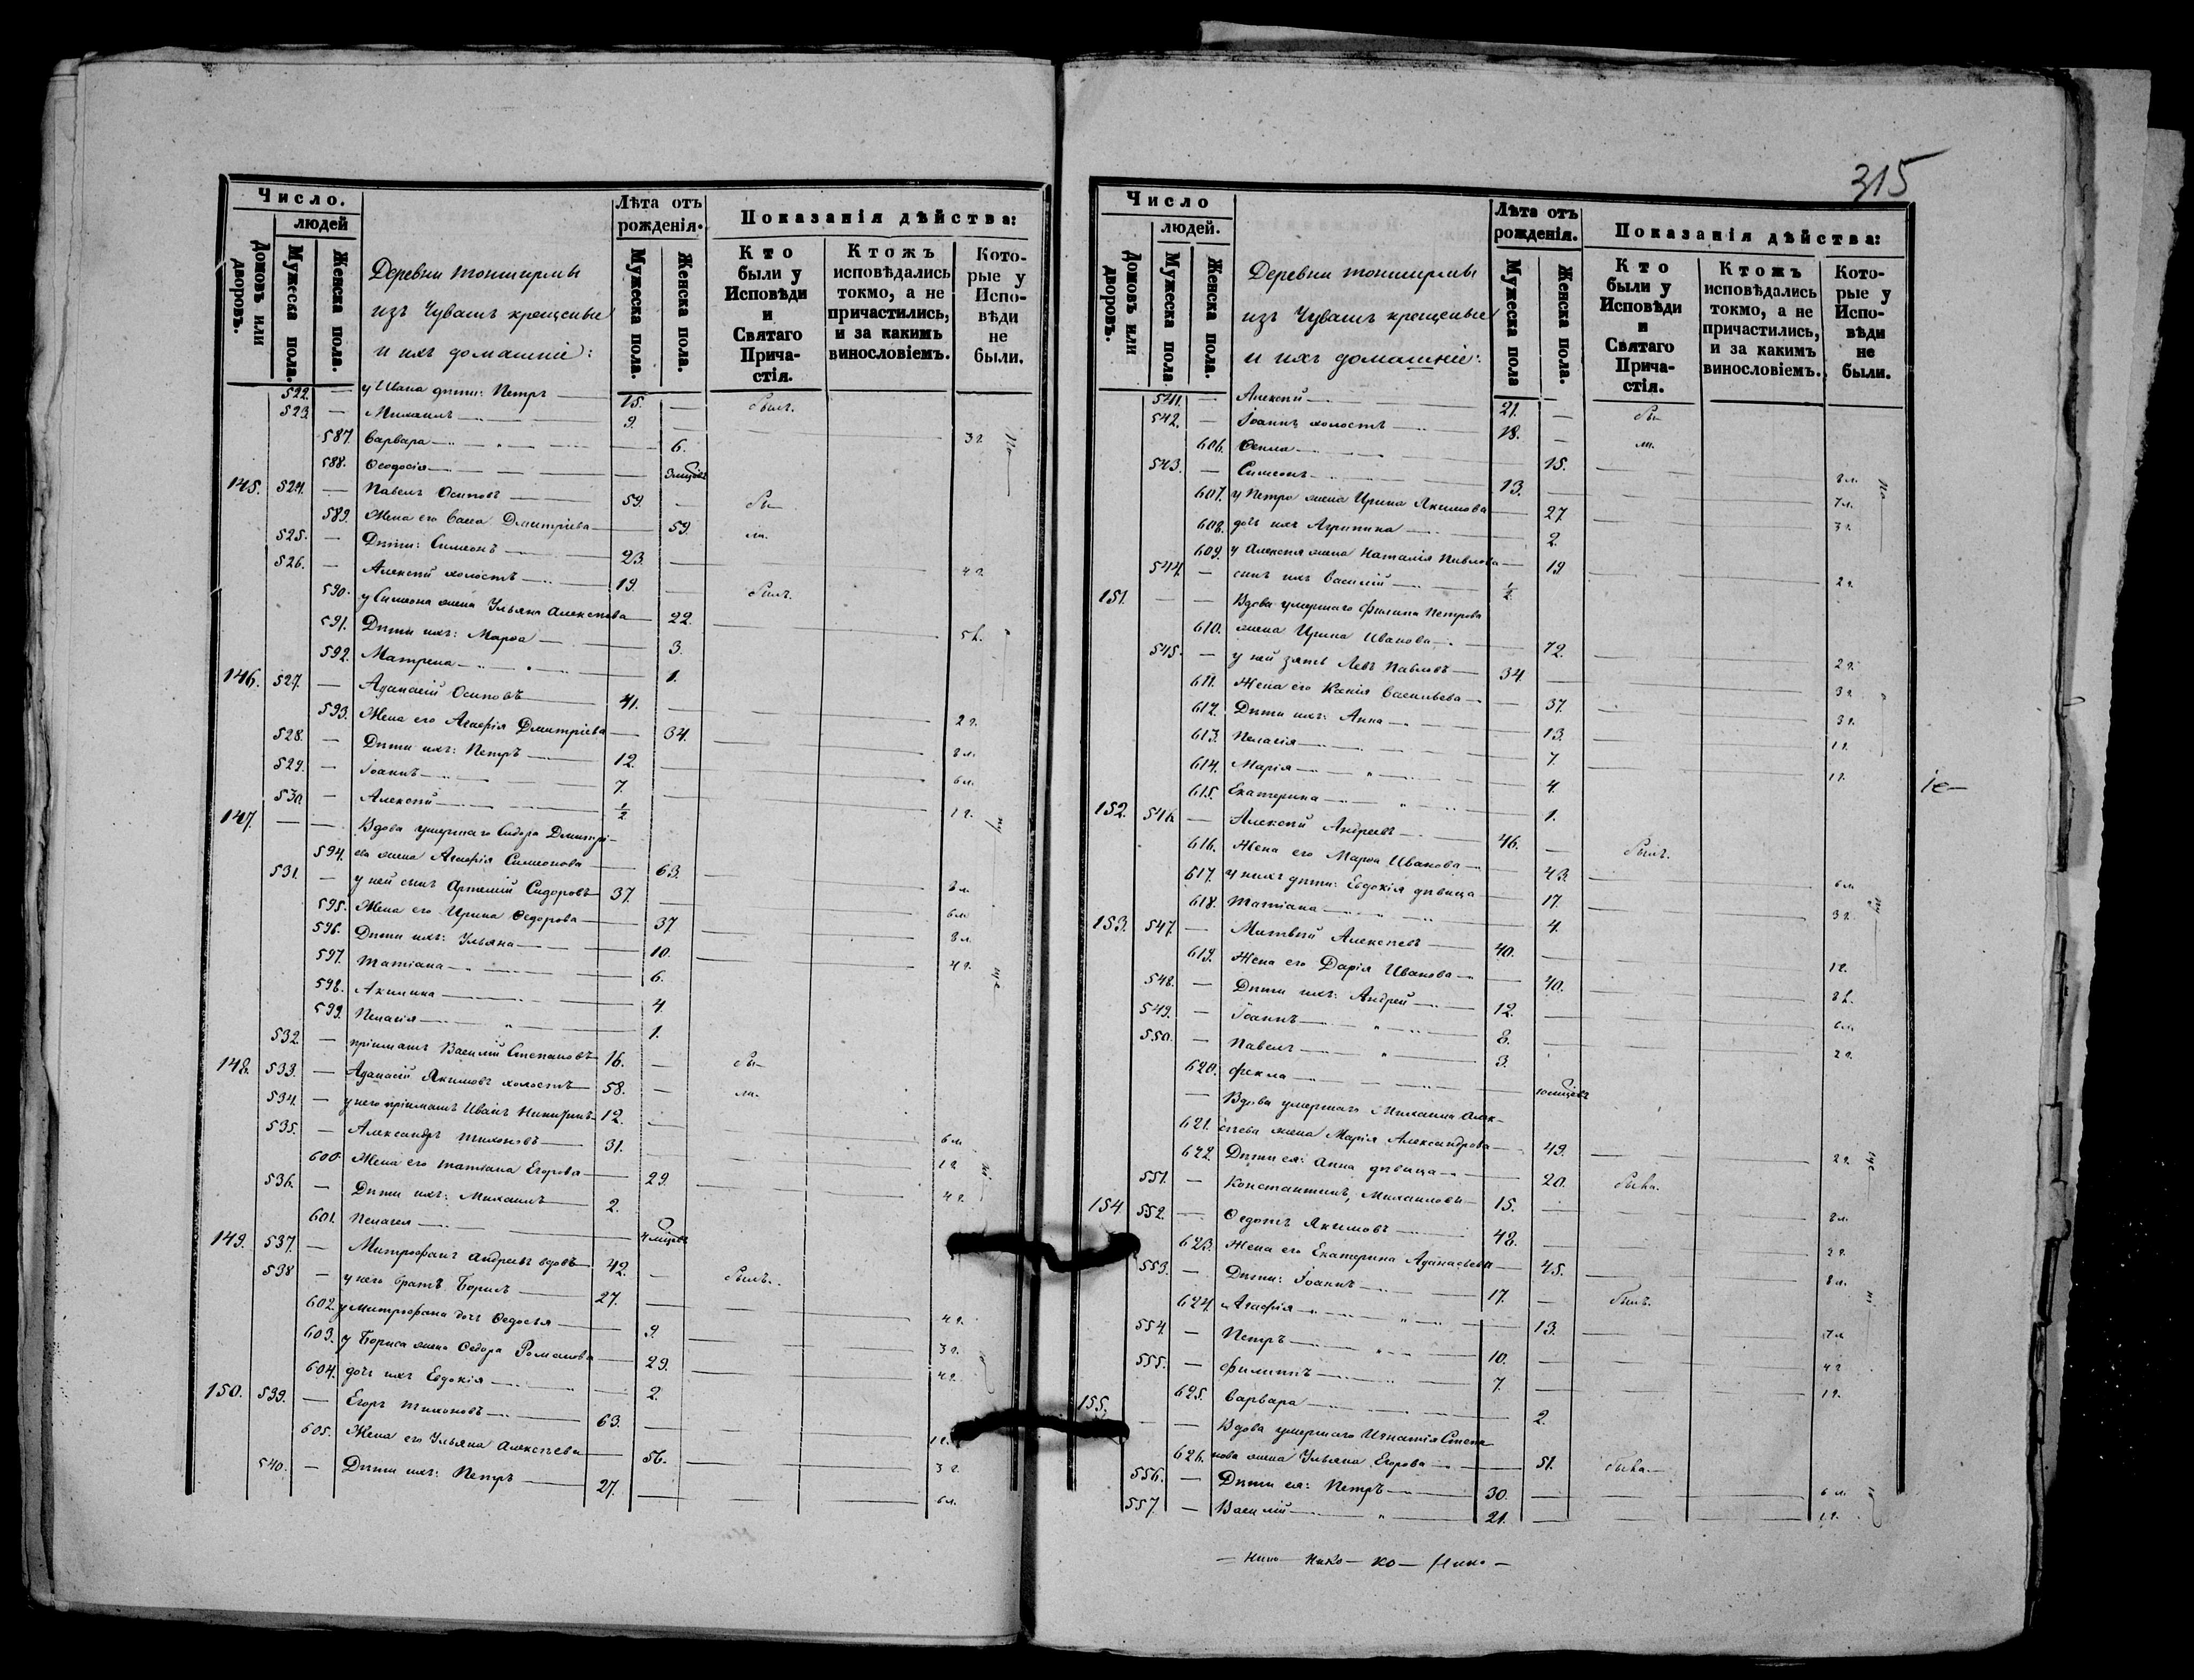 Число.
людей
Домовъ или дворовъ.
Мужеска пола.
Женска пола.
Деревни тоншермы
изъ Чувашъ крещеные
и ихъ домашніе:
Лѣта отъ рожденія.
Мужеска пола.
Женска пола.
Показанія дѣйства:
Кто были у Исповѣди и Святаго Причастія.
Ктожъ исповѣдались токмо, а не причастились, и за какимъ винословіемъ.
Которые у Исповѣди не были.
522. — у Ивана дѣти: Петръ 15. — былъ.
523. — Михаилъ 9. —
587. Варвара 6. 3 г.
588. Ѳеодосія
145. 524. — Павелъ Осиповъ 59. — бы-
589. Жена его Васса Дмитріева 59. ли.
525. — Дѣти: Симеонъ 23.
526. — Алексѣй холостъ 19. 4 г.
590. у Симеона жена Ульяна Алексѣева 22. былъ.
591. Дѣти ихъ: Марѳа 3.
592. Матрена 1.
146. 527. — Аѳанасій Осиповъ 41.
593. Жена его Агафія Дмитріева 34. 2 г.
528. — Дѣти ихъ: Петръ 12. 8 л.
529. — Іоаннъ 7. 6 л.
530. — Алексѣй ½ 1 г.
147. — — Вдова умершаго Сидора Дмитрі-
594. ева жена Агафія Симеонова 63.
531. — у ней сынъ Артемій Сидоровъ 37. 8 л.
595. Жена его Ирина Ѳедорова 37 6 л.
596. Дѣти ихъ: Ульяна 10. 8 л.
597. Татіана 6. 4 г.
598. Акилина 4.
599. Пелагія 1.
532. — пріимашъ Василій Степановъ 16. — бы-
148. 533. — Аѳанасій Якимовъ холостъ 58. — ли.
534. — у него пріимашъ Иванъ 12.
535. — Александръ Тихоновъ 31. 6 л.
600. Жена его Татіана Егорова 29. 1 г.
536. — Дѣти ихъ: Михаилъ 2. 4 г.
601. Пелагея
149. 537. — Митрофанъ Андреевъ вдовъ 42. — былъ.
538 — у него братъ Борисъ 27.
602. у Митрофана дочь Ѳедосья 9. 4 г.
603. у Бориса жена Ѳедора Романова 29. 3 г.
604. дочь ихъ Евдокія 2. 4 г.
150. 539. — Егоръ Тихоновъ 63.
605. Жена его Ульяна Алексѣева 56. 1 г.
540. — Дѣти ихъ: Петръ 27. 3 г.
6 л.
315
Число
людей.
Домовъ или дворовъ.
Мужеска пола
Женска пола.
Деревни тоншермы
изъ Чувашъ крещеные
и ихъ домашніе:
Лѣта отъ рожденія.
Мужеска пола
Женска пола.
Показанія дѣйства:
Кто были у Исповѣди и Святаго Причастія.
Ктожъ исповѣдались токмо, а не причастились, и за какимъ винословіемъ.
Которые у Исповѣди не были.
541. — Алексѣй 21. — бы-
542. — Іоаннъ холостъ 18. — ли.
606. Ѳекла 15.
543. — Симеонъ 13. 8 л.
607. у Петра жена Ирина Якимова 27 7 л.
608. дочь ихъ Агрипина 2. 3 г.
609. у Алексѣя жена Наталія Павлова 19
544. — сынъ ихъ Василій ½ 2 г.
151. — — Вдова умершаго Филипа Петрова
610. жена Ирина Иванова 72.
545. — у ней зять Левъ Павловъ 34. 2 г.
611. Жена его Ксенія Васильева 37. 3 г.
612. Дѣти ихъ: Анна 13. 3 г.
613. Пелагія 7. 1 г.
614. Марія 4. 1 г.
615. Екатерина 1.
152. 546. — Алексѣй Андреевъ 46. — былъ.
616. Жена его Марѳа Иванова 43.
617. у нихъ дѣти: Евдокія дѣвица 17. 6 л.
618. Татіана 4. 3 г.
153. 547. — Матвѣй Алексѣевъ 40.
619. Жена его Дарія Иванова 40. 1 г.
548. — Дѣти ихъ: Андрей 12.
549. — Іоаннъ 8. 6 л.
550. — Павелъ 3. 2 г.
620. Фекла
— Вдова умершаго Михаила Алек-
621. сѣева жена Марія Александрова 49.
622. Дѣти ея: Анна дѣвица 20. 2 г. была.
551. — Константинъ, Михаиловъ 15.
154 552. — Ѳедотъ Якимовъ 48. 8 л.
623. Жена его Екатерина Аѳанасьева 45. 3 г.
553. — Дѣти: Іоаннъ 17. — былъ. 8 л.
624. Агафія 13.
554. — Петръ 10. 7 л.
555. — Филиппъ 7. 4 г.
625. Варвара 2. 1 г.
155. — — Вдова умершаго Игнатія Степа-
626. нова жена Ульяна Егорова 51. была.
556. — Дѣти ея: Петръ 30. 6 л.
557. — Василій 21. 1 г.